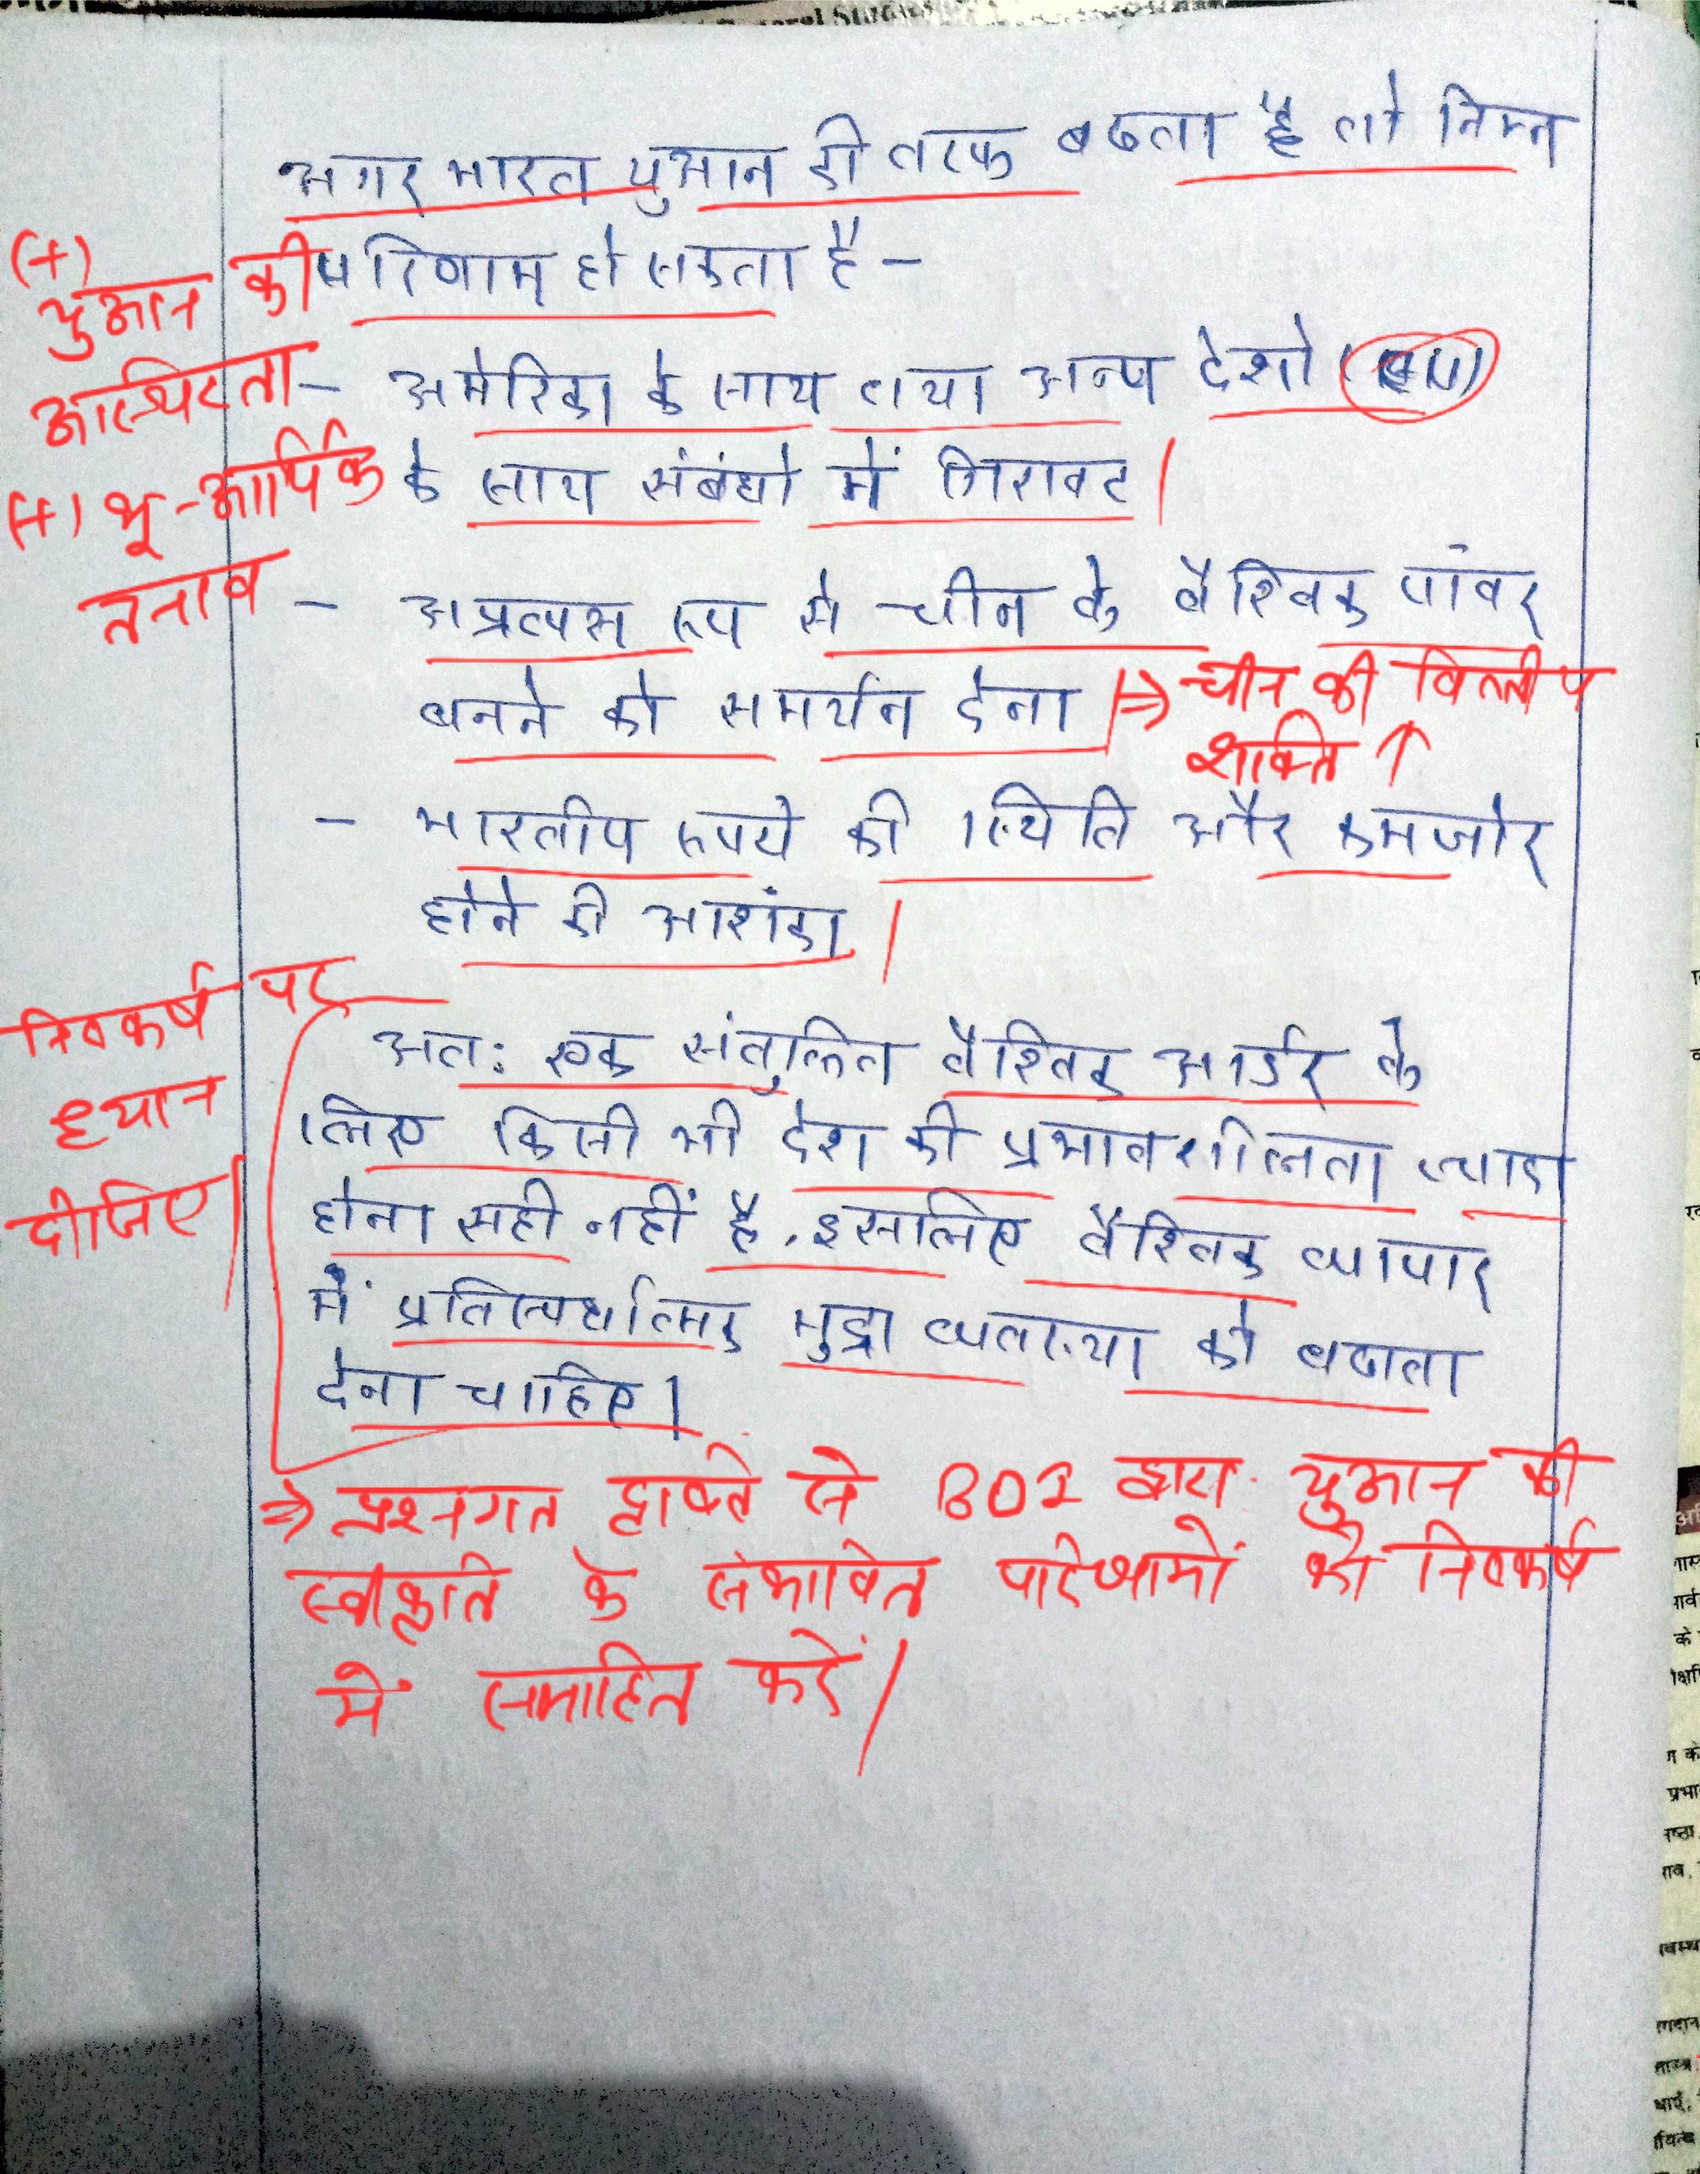 अगर भारत युआन की तरफ बढता है तो निम्न
परिणाम हो सकता है –
(+) युआन की
अस्थिरता
(+) भू-आर्थिक
तनाव
– अमेरिका के साथ तथा अन्य देशो
के साथ संबंधो में गिरावट।
– अप्रत्यक्ष रूप से चीन के वैश्विक पॉवर
बनने को समर्थन देना।
⇒ चीन की वित्तीय
शक्ति ↑
– भारतीय रुपये की स्थिति और कमजोर
होने की आशंका।
निष्कर्ष पर
ध्यान
दीजिए।
अतः एक संतुलित वैश्विक आर्डर के
लिए किसी भी देश की प्रभावशीलता ज्यादा
होना सही नहीं है, इसलिए वैश्विक व्यापार
में प्रतिस्पर्धात्मक मुद्रा व्यवस्था को बढावा
देना चाहिए।
⇒ प्रश्नगत दृष्टि से BOI द्वारा युआन की
स्वीकृति के संभावित परिणामों को निष्कर्ष
में समाहित करें।